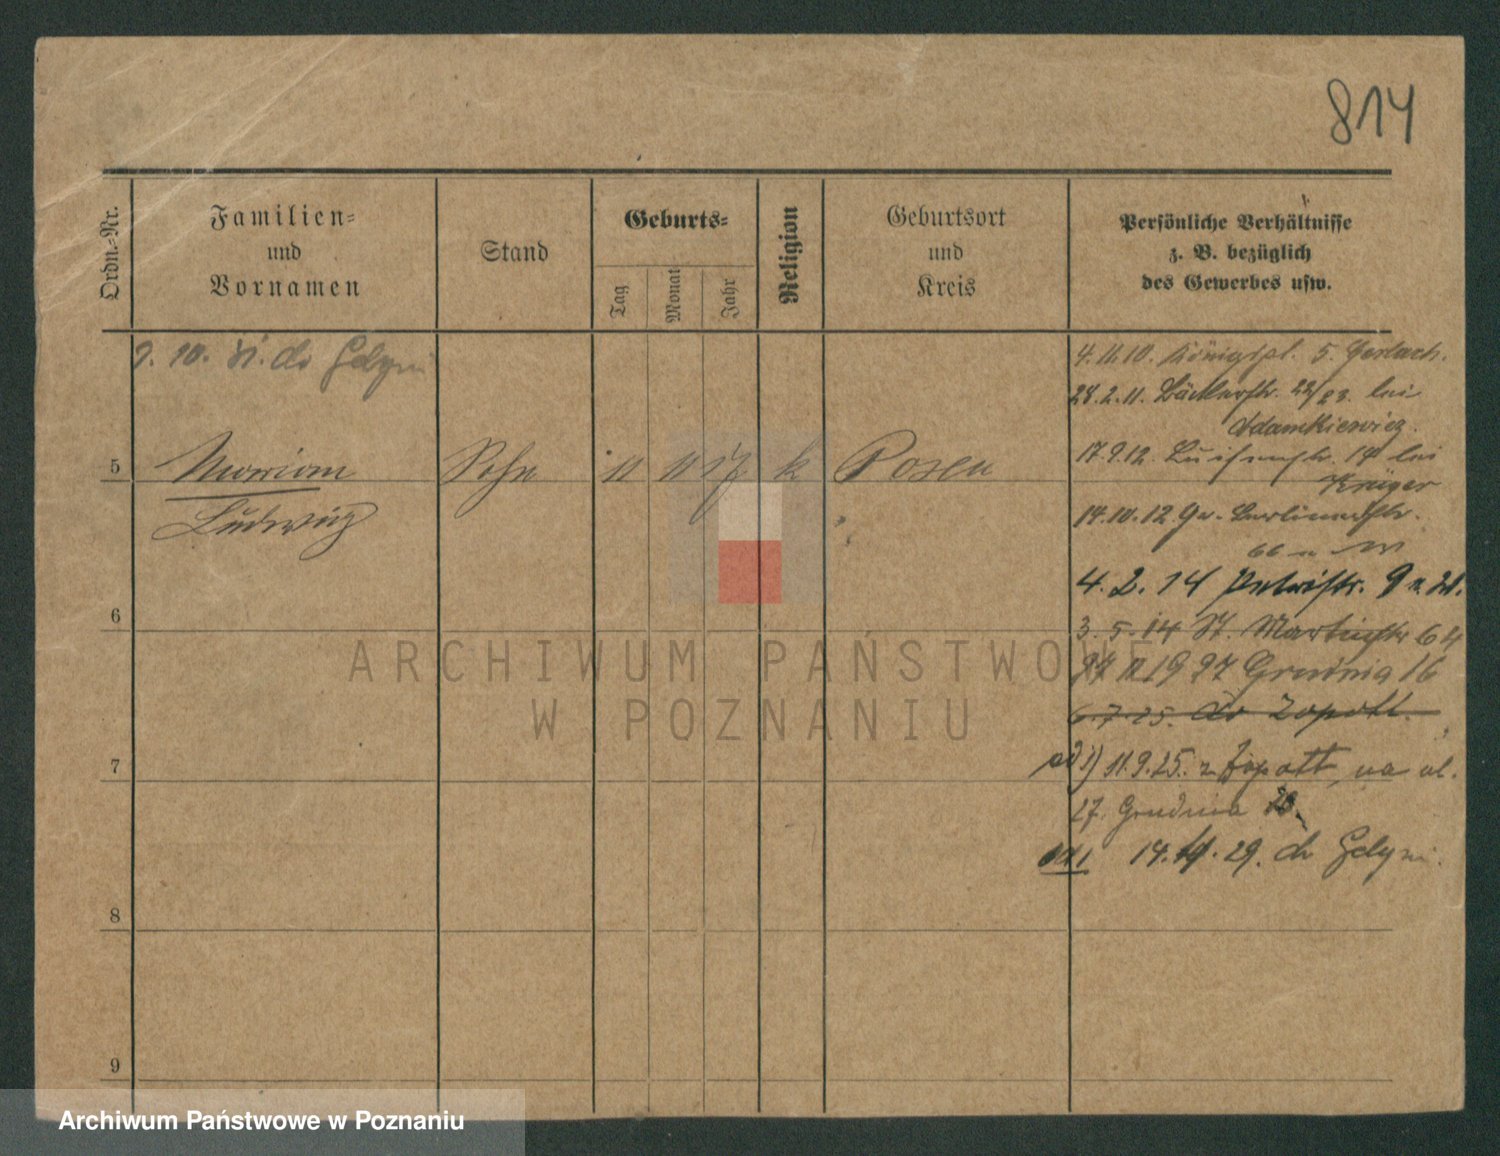 814
Ordn.-Nr.
Familien-
und
Vornamen
Stand
Geburts-
Tag
Monat
Jahr
Religion
Geburtsort
und
Kreis
Persönliche Verhältnisse
z. B. bezüglich
des Gewerbes usw.
9. 10. 31. do Gdyni
4.11.10. Königspl. 5. Gerlach.
28.2.11. Bäckerstr. 22/23. bei
Adamkiewicz.
17.9.12. Luisenstr. 14 bei
Krüger
5 Marian Sohn 11 11 17 k Posen
Ludwig
14.10.12 Gr. Berlinerstr.
66
4. 2. 14 Petristr. 9
6
3. 5. 14 St. Martinstr 64
27 Grudnia 16
6.7.25. do Zopott.
7
ad 1) 11.9.25. z Zopott, na ul.
27. Grudnia
ad 1 14. 29. do Gdyni.
8
9
ARCHIWUM PAŃSTWOWE
W POZNANIU
Archiwum Państwowe w Poznaniu